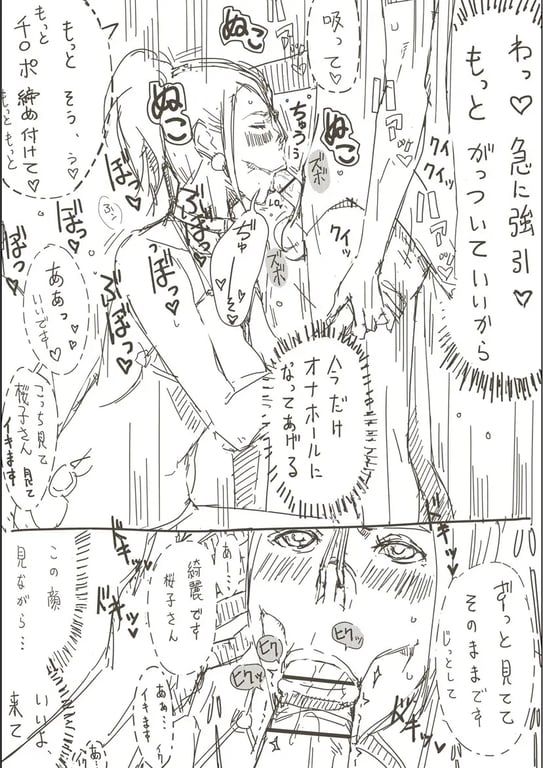 わっ♡急に強引♡
もっとがっついていいから
吸って♡
もっと
もっとそう、う♡
チ○ポ締め付けて♡
もっともっと
ぬこ
ぬこ
ぬこ
ちゅうぅ
ズボ
ズボ
クイ
クイッ
クイッ
ぼっ♡
ぼっ♡
ぼっ♡
ああっ♡
いいです♡
こっち見て
桜子さん見て
イキます
今だけ
オナホールに
なってあげる
ずっと見てて
そのままです
じっとして
あー…
綺麗です
桜子さん
ヒクッ
ヒクッ
ヒクッ
ドキッ♥
ドキッ♥
ドキッ♥
この顔
見ながら…
あぁ…
イキます
いいよ
来て